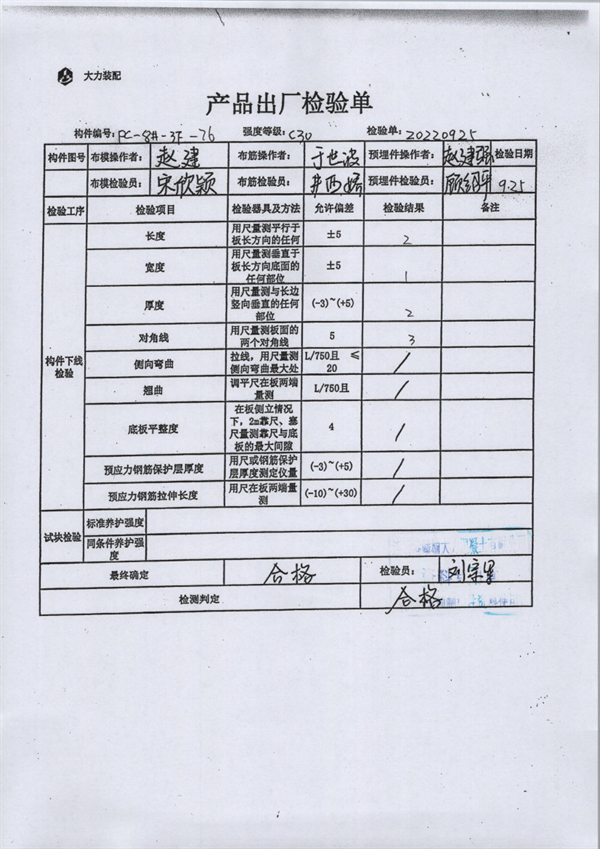 大力装配
产品出厂检验单
构件编号: PC-8#-3F-76 强度等级: C30 检验单: 20220925
构件图号 布模操作者: 赵建 布筋操作者: 于世波 预埋件操作者: 赵建强 检验日期
布模检验员: 宋欣颖 布筋检验员: 预埋件检验员: 9.25
检验工序 检验项目 检验器具及方法 允许偏差 检验结果 备注
构件下线检验
长度 用尺量测平行于 ±5 2
板长方向的任何
宽度 用尺量测垂直于 ±5 1
板长方向底面的
任何部位
厚度 用尺量测与长边 (-3)~(+5) 2
竖向垂直的任何
部位
对角线 用尺量测板面的 5 3
两个对角线
侧向弯曲 拉线，用尺量测 L/750且 ≤ /
侧向弯曲最大处 20
翘曲 调平尺在板两端 L/750且 /
量测
底板平整度 在板侧立情况 4 /
下，2m靠尺、塞
尺量测靠尺与底
板的最大间隙
预应力钢筋保护层厚度 用尺或钢筋保护 (-3)~(+5) /
层厚度测定仪量
预应力钢筋拉伸长度 用尺在板两端量 (-10)~(+30) /
测
试块检验 标准养护强度
同条件养护强
度
最终确定 合格 检验员: 刘宗星
检测判定 合格